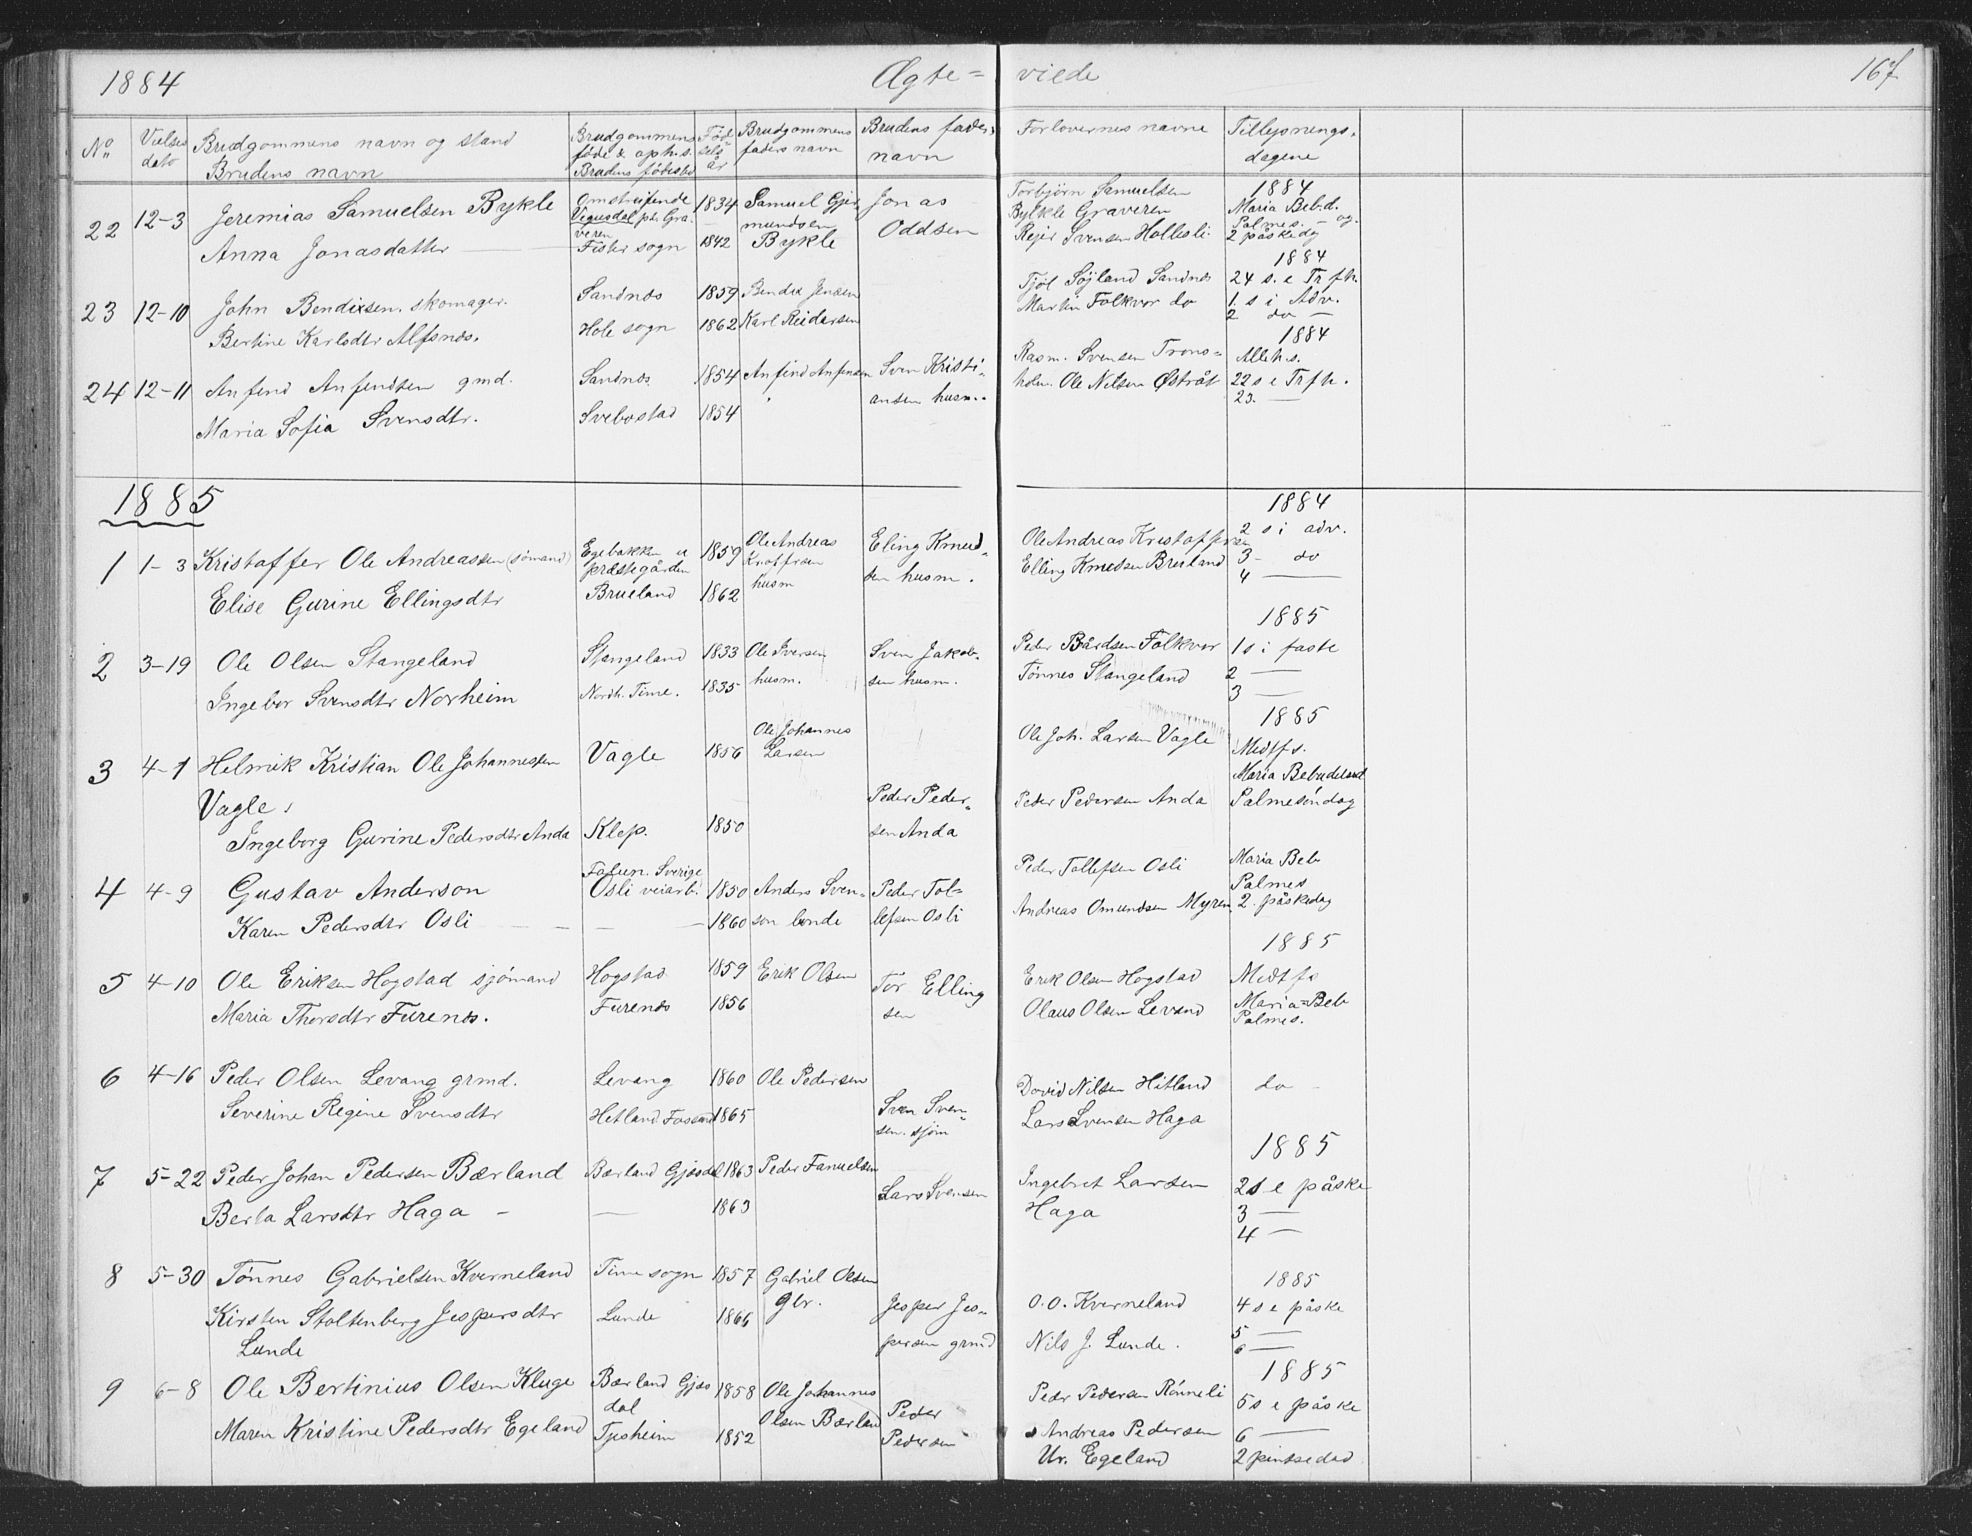 1884 Ægte= viede 167
No Vielses dato Brudgommens navn og stand Brudens navn Brudgommens føde & oph.s. Brudens fødested Fødselsår Brudgommens faders navn Brudens faders navn Forlovernes navne Tillysnings. dagene
1884
22 12-3 Jeremias Samuelsen Bykle Omstreifende 1834 Samuel Gjermundsen Bykle Jonas Oddsen Torbjörn Samuelsen Maria Beb.d.
Anna Jonasdatter Fister sogn 1842 Bykle Graveren Palmes. og
Rejer Svensen Hollesli 2 påskedg
1884
23 12-10 John Bendixsen. skomager. Sandnes 1859 Bendix Jensen Tjöl Söyland Sandnes 24 s. e Trfh.
Bertine Karlsdtr Alfsnes. Hole sogn 1862 Karl Reidarsen Martin Folkvor do 1. s i Adv.
2 do -
1884
24 12-11 Anfind Anfindsen gmd. Sandnes 1854 Anfind Anfensen Sven Kristiansen husm. Rasm. Svensen Tronsholm Alleh.s.
Maria Sofia Svensdtr. Svebostad 1854 Ole Nilsen Østråt 22 s e Trfh.
23. —
1885
1884
1 1-3 Kristoffer Ole Andreassen (sömand) Egebakken u præstegården 1859 Ole Andreas husm Eling Knudsen husm. Ole Andreas Krestoffersen 2 s i adv.
Elise Gurine Ellingsdtr Brueland 1862 Elling Knudsen Breiland 3 - do
4 —
1885
2 3-19 Ole Olsen Stangeland Stangeland 1833 Ole Iversen husm. Sven Jakobsen husm. Peder Bårdsen Folkvor 1 s i faste
Ingebor Svensdtr Norheim Nordh. Time. 1835 Tønnes Stangeland 2 —
3 —
1885
3 4-1 Helmik Kristian Ole Johannessen Vagle 1856 Ole Johannes Larsen Ole Joh. Larsen Vagle Medtfs.
Vagle, Maria Bebudelsesd
Ingeborg Gurine Pedersdtr Anda Klep. 1850 Peder Pedersen Anda Peder Pedersen Anda Palmesöndag
4 4-9 Gustav Anderson Falun. Sverige Osli veiarb. 1850 Anders Svenson bonde Peder Tollefsen Osli Peder Tollefsen Osli Maria Beb
Karen Pedersdtr Osli — — — 1860 Palmes
Andreas Omundsen Myren 2. påskedag
1885
5 4-10 Ole Eriksen Hogstad sjömand Hogstad 1859 Erik Olsen Tor Ellingsen Erik Olsen Hogstad Medtfs
Maria Thorsdtr Furenes. Furenes 1856 Olaus Olsen Levand Maria=Beb
Palmes.
6 4-16 Peder Olsen Levang grmd. Levang 1860 Ole Pedersen David Nilsen Hitland do -
Severine Regine Svensdtr Hetland Fossand 1865 Sven Svensen. sjöm Lars Svensen Haga
1885
7 5-22 Peder Johan Pedersen Bærland Bærland Gjesdal 1863 Peder Fanuelsen Ingebret Larsen 2 s e påske
Berta Larsdtr Haga - — 1863 Lars Svensen Haga 3 —
4 —
1885
8 5-30 Tönnes Gabrielsen Kverneland Time sogn 1857 Gabriel Olsen gbr. O. O. Kverneland 4 s e påske
Kirsten Stoltenberg Jespersdtr Lunde 1866 Jesper Jespersen grmd 5 —
Lunde Nils J. Lunde. 6 —
1885
9 6-8 Ole Bertinius Olsen Kluge Bærland Gjesdal 1858 Ole Johannes Olsen Bærland Peder Pedersen Rönneli 5 s e påske
Maren Kristine Pedersdtr Egeland Tpsheim 1852 Peder Pedersen Andreas Pedersen 6 —
Ur. Egeland 2 pintsedad